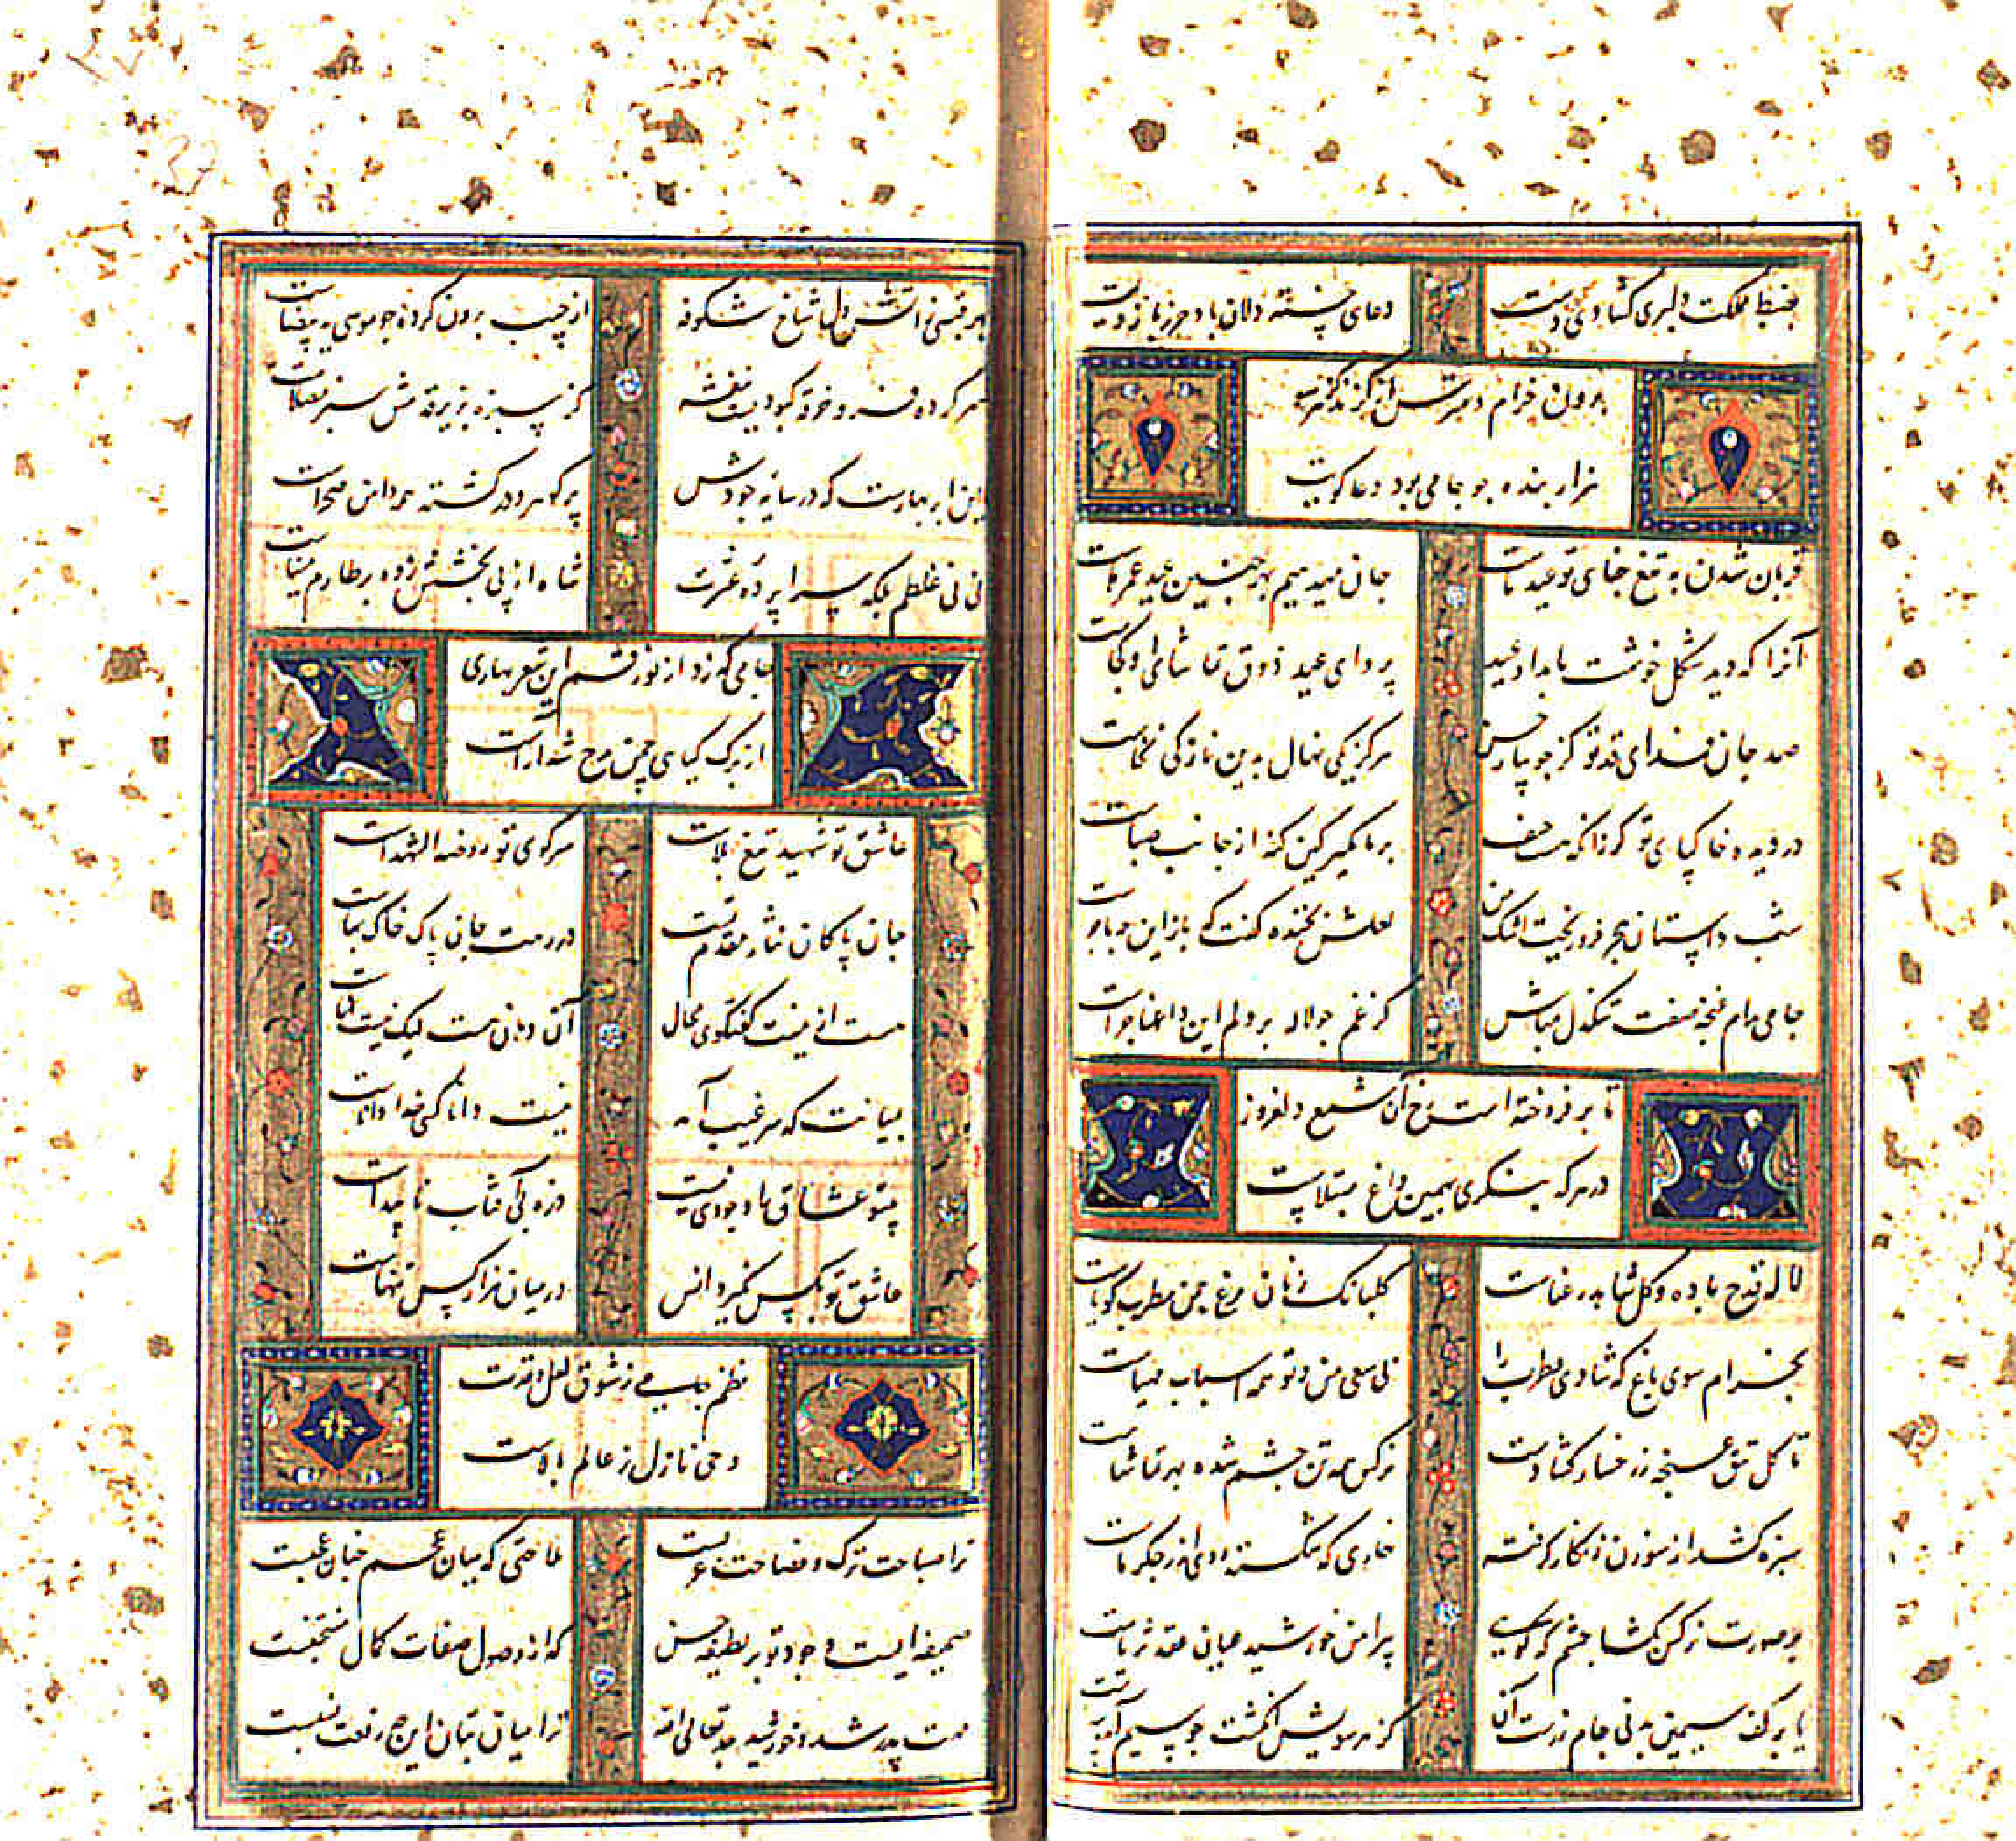 بضبط مملکت دلبری گشادی دست
دعای خسته دلان باد حرز بازویت
برون خرام و مترس از گزند کز هر سو
هزار بنده چو جامی بود دعاگویت
قربان شدن به تیغ جفای تو عید ماست
جان میدهیم بهر چنین عید عمرهاست
آنرا که دید شکل خوشت بامداد عید
پروای عید و ذوق تماشای او کجاست
صد جان فدای قد تو کز جویبار حسن
هرگز یکی نهال بدین نازکی نخاست
در دیده خاک پای تو گر زانکه هست حیف
بر ما مگیر کین گنه از جانب صباست
شب داستان هجر فرو ریخت اشک من
لعلش بخنده گفت که باز این چه ماجراست
جامی مدام غنچه صفت تنگدل مباش
کز غم چو لاله بر دلم این داغها چراست
تا بر فروخته است رخ آن شمع دلفروز
در هر که بنگری بهمین داغ مبتلاست
لاله قدح باده و گل شاهد رعناست
گلبانگ زنان مرغ چمن مطرب گویاست
بخرام سوی باغ که شادی و طرب را
بی سعی من و تو همه اسباب مهیاست
تا گل تتق غنچه ز رخسار گشادست
نرگس همه تن چشم شده بهر تماشاست
سبزه کشد از سوزن زنگار گرفته
خاری که شکسته ز دی اندر جگر ماست
بر صورت نرگس بگشا چشم که گویی
پیرامن خورشید عیان عقد ثریاست
یا بر کف سیمین بدنی جام زرست آن
کز هر سویش انگشت چو سیم آمده
بهر قبس ز آتش دل شاخ شکوفه
از جیب برون کرده چو موسی ید بیضاست
سر کرده فرو خرقه کبودیست بنفشه
کز سبزه بزیر قدمش سبز مصلاست
این ابر بهارست که در سایه جودش
پر گوهر و در گشته همه دامن صحراست
نی نی غلطم بلکه سراپرده عشرت
شاه از پی بخشش زده بر طارم میناست
جامی که زد از نوک قلم این شعر بهاری
از برگ گیاهی چمن مدح شه آراست
عاشق تو شهید تیغ بلاست
سر کوی تو روضة الشهداست
جان پاکان نثار مقدم تست
در رهت جان پاک خاک بهاست
هست انی نیست گفتگوی محال
آن دهان هست لیک نیست نماست
میانت که سر غیب آمد
نیست دانا کسی خدا داناست
پیش تو عشاق با وجودی نیست
ذره بی آفتاب ناپیداست
عاشق تو بکس نگیرد انس
در میان هزار کس تنهاست
نظم جامی ز شوق لعل و قدت
وحی نازل ز عالم بالاست
ترا صباحت ترک و فصاحت عربست
ملاحتی که میان عجم چنان عجبست
صحیفه ایست وجود تو بر لطیفه حسن
که از وصول صفات کمال منتخبست
مهت پدر شد و خورشید جد تعالی الله
ترا میان بتان این چه رفعت نسبست